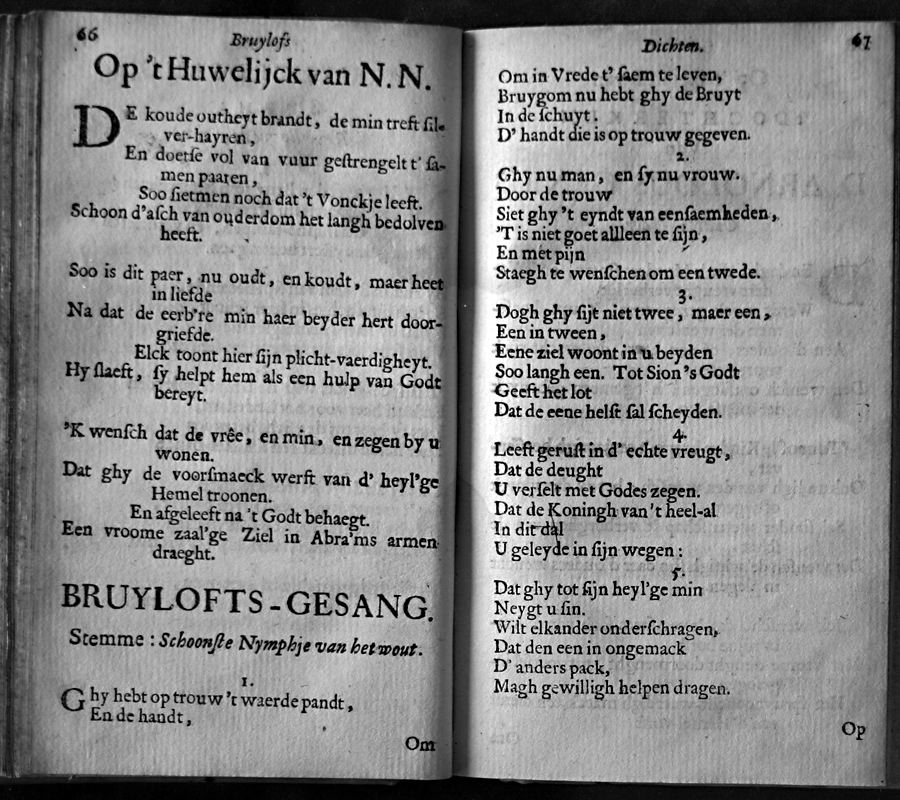 66
Bruylofs
Op 't Huwelijck van N. N.
DE koude outheyt brandt, de min treft ſil-
ver-hayren,
En doetſe vol van vuur geſtrengelt t' ſa-
men paaren,
Soo ſietmen noch dat 't Vonckje leeft.
Schoon d'aſch van ouderdom het langh bedolven
heeft.
Soo is dit paer, nu oudt, en koudt, maer heet
in liefde
Na dat de eerb're min haer beyder hert door-
griefde.
Elck toont hier ſijn plicht-vaerdigheyt.
Hy ſlaeft, ſy helpt hem als een hulp van Godt
bereyt.
'K wenſch dat de vrêe, en min, en zegen by u
wonen.
Dat ghy de voorſmaeck werft van d' heyl'ge
Hemel troonen.
En afgeleeft na 't Godt behaegt.
Een vroome zaal'ge Ziel in Abra'ms armen
draeght.
BRUYLOFTS-GESANG.
Stemme : Schoonſte Nymphje van het wout.
1.
Ghy hebt op trouw 't waerde pandt,
En de handt,
Om
Dichten.
67
Om in Vrede t' ſaem te leven,
Bruygom nu hebt ghy de Bruyt
In de ſchuyt.
D' handt die is op trouw gegeven.
2.
Ghy nu man, en ſy nu vrouw.
Door de trouw
Siet ghy 't eyndt van eenſaemheden,
'T is niet goet allleen te ſijn,
En met pijn
Staegh te wenſchen om een twede.
3.
Dogh ghy ſijt niet twee, maer een,
Een in tween,
Eene ziel woont in u beyden
Soo langh een. Tot Sion's Godt
Geeft het lot
Dat de eene helft ſal ſcheyden.
4.
Leeft geruſt in d' echte vreugt,
Dat de deught
U verſelt met Godes zegen.
Dat de Koningh van 't heel-al
In dit dal
U geleyde in ſijn wegen :
5.
Dat ghy tot ſijn heyl'ge min
Neygt u ſin.
Wilt elkander onderſchragen,
Dat den een in ongemack
D' anders pack,
Magh gewilligh helpen dragen.
Op